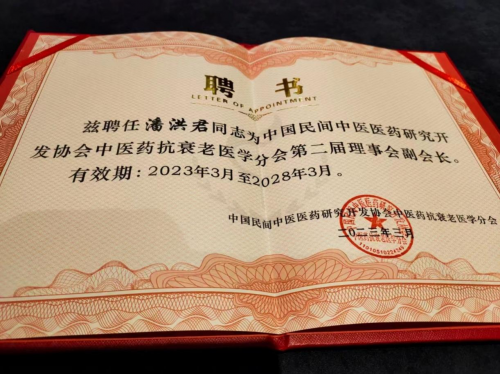 聘书
LETTER OF APPOINTMENT
兹聘任潘洪君同志为中国民间中医医药研究开
发协会中医药抗衰老医学分会第二届理事会副会长。
有效期：2023年3月至2028年3月。
中国民间中医医药研究开发协会中医药抗衰老医学分会
二〇二三年三月